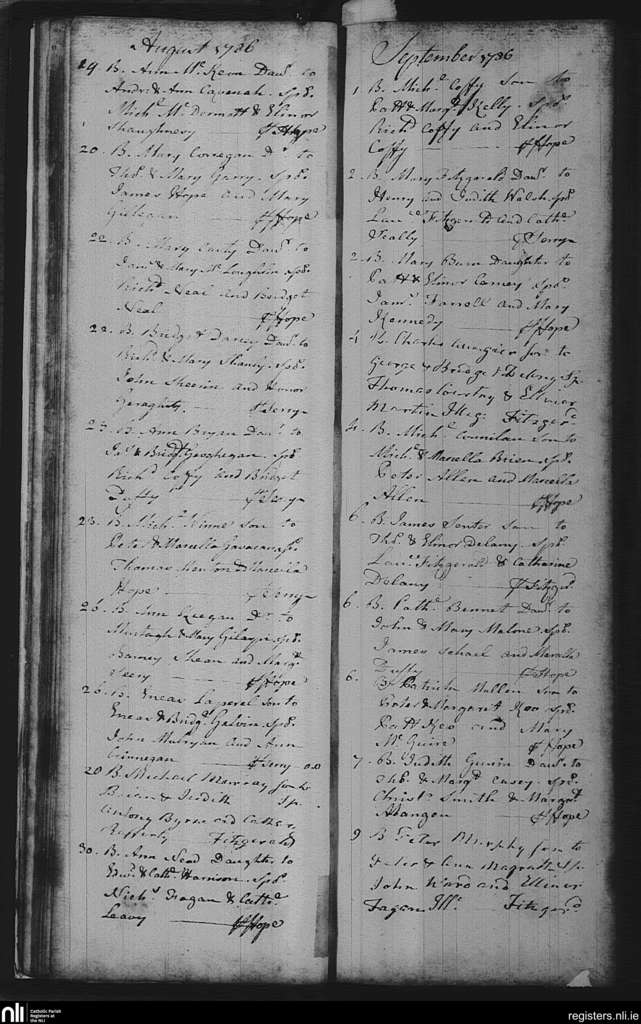 August 1786
19 B. Ann McKeon Daur. to
Andr. & Ann Cavanah Sprs.
Michl. McDermatt & Elinor
Shaughnesy Hope
20. B. Mary Corregan Dr. to
Ths. & Mary Gerry Sprs.
James Hope and Mary
Hope
22. B. Mary Carty Daur. to
Jams. & Mary McLoughlin Sprs.
Richd. Neal and Bridget
Neal Hope
22. B. Bridgt. Darcy Daur. to
& Mary Sprs.
John and Honor
Geraghty
23. B. Ann Bryan Daur. to
& Bridgt. Geoghegan Sprs.
Richd. Coffy and Bridget
Duffy
23. B. Michl. Kinne Son to
Peter & Marcella Sprs.
Thomas Kenton & Marcella
Hope
25. B. Ann Keegan Dr. to
Murtagh & Mary Sprs.
Barney and Margt.
Hope
25. B. Enear Son to
Enear & Bridgt. Galvin Sprs.
John Mulryan and Ann
Finnegan
20 B. Michael Murray Son to
Brian & Judith Sp.
Antony Byrne and Cather.
Fitzgerald
30. B. Ann Nead Daughter to
Edwd. & Cathe. Harrison Sprs.
Nichs. Fragan & Cathe.
Leavy Hope
September 1786
1 B. Michl. Coffy Son to
Patt & Margt. Kelly Sprs.
Richd. Coffy and Elinor
Coffy Hope
2 B. Mary Fitzgerald Daur. to
Henry and Judith Walsh Sprs.
Laur. Fitzgerald and Cathe.
2. B. Mary Burn Daughter to
Patt & Elinor Carney Sprs.
James Farrell and Mary
Kennedy Hope
4 Charles Son to
George & Bridget Delany Sp.
Thomas & Elinor
Martin Illeg. Fitzger.
4. B. Michl. Son to
Michl. & Marcella Brien Sprs.
Peter Allen and Marcella
Allen Hope
6. B. James Senter Son to
Ths. & Elinor Delany Sprs.
Laur. Fitzgerald & Catharine
Delany Fitzgerd
6. B. Bennet Daur. to
John & Mary Malone Sprs.
James and Marcella
Duffy Hope
6. B. Patrick Mullen Son to
Peter & Margaret Keo Sprs.
Patt Keo and Mary
McGuire Hope
7. B. Judith Daur. to
Ths. & Margt. Casey Sprs.
Christr. Smith & Margt.
Mangan Hope
9 B. Peter Murphy Son to
Peter & Ann Magrath Sp.
John Ward and Ellinor
Fagan Ill. Fitzgerd
nli Catholic Parish
Registers at
the NLI
registers.nli.ie